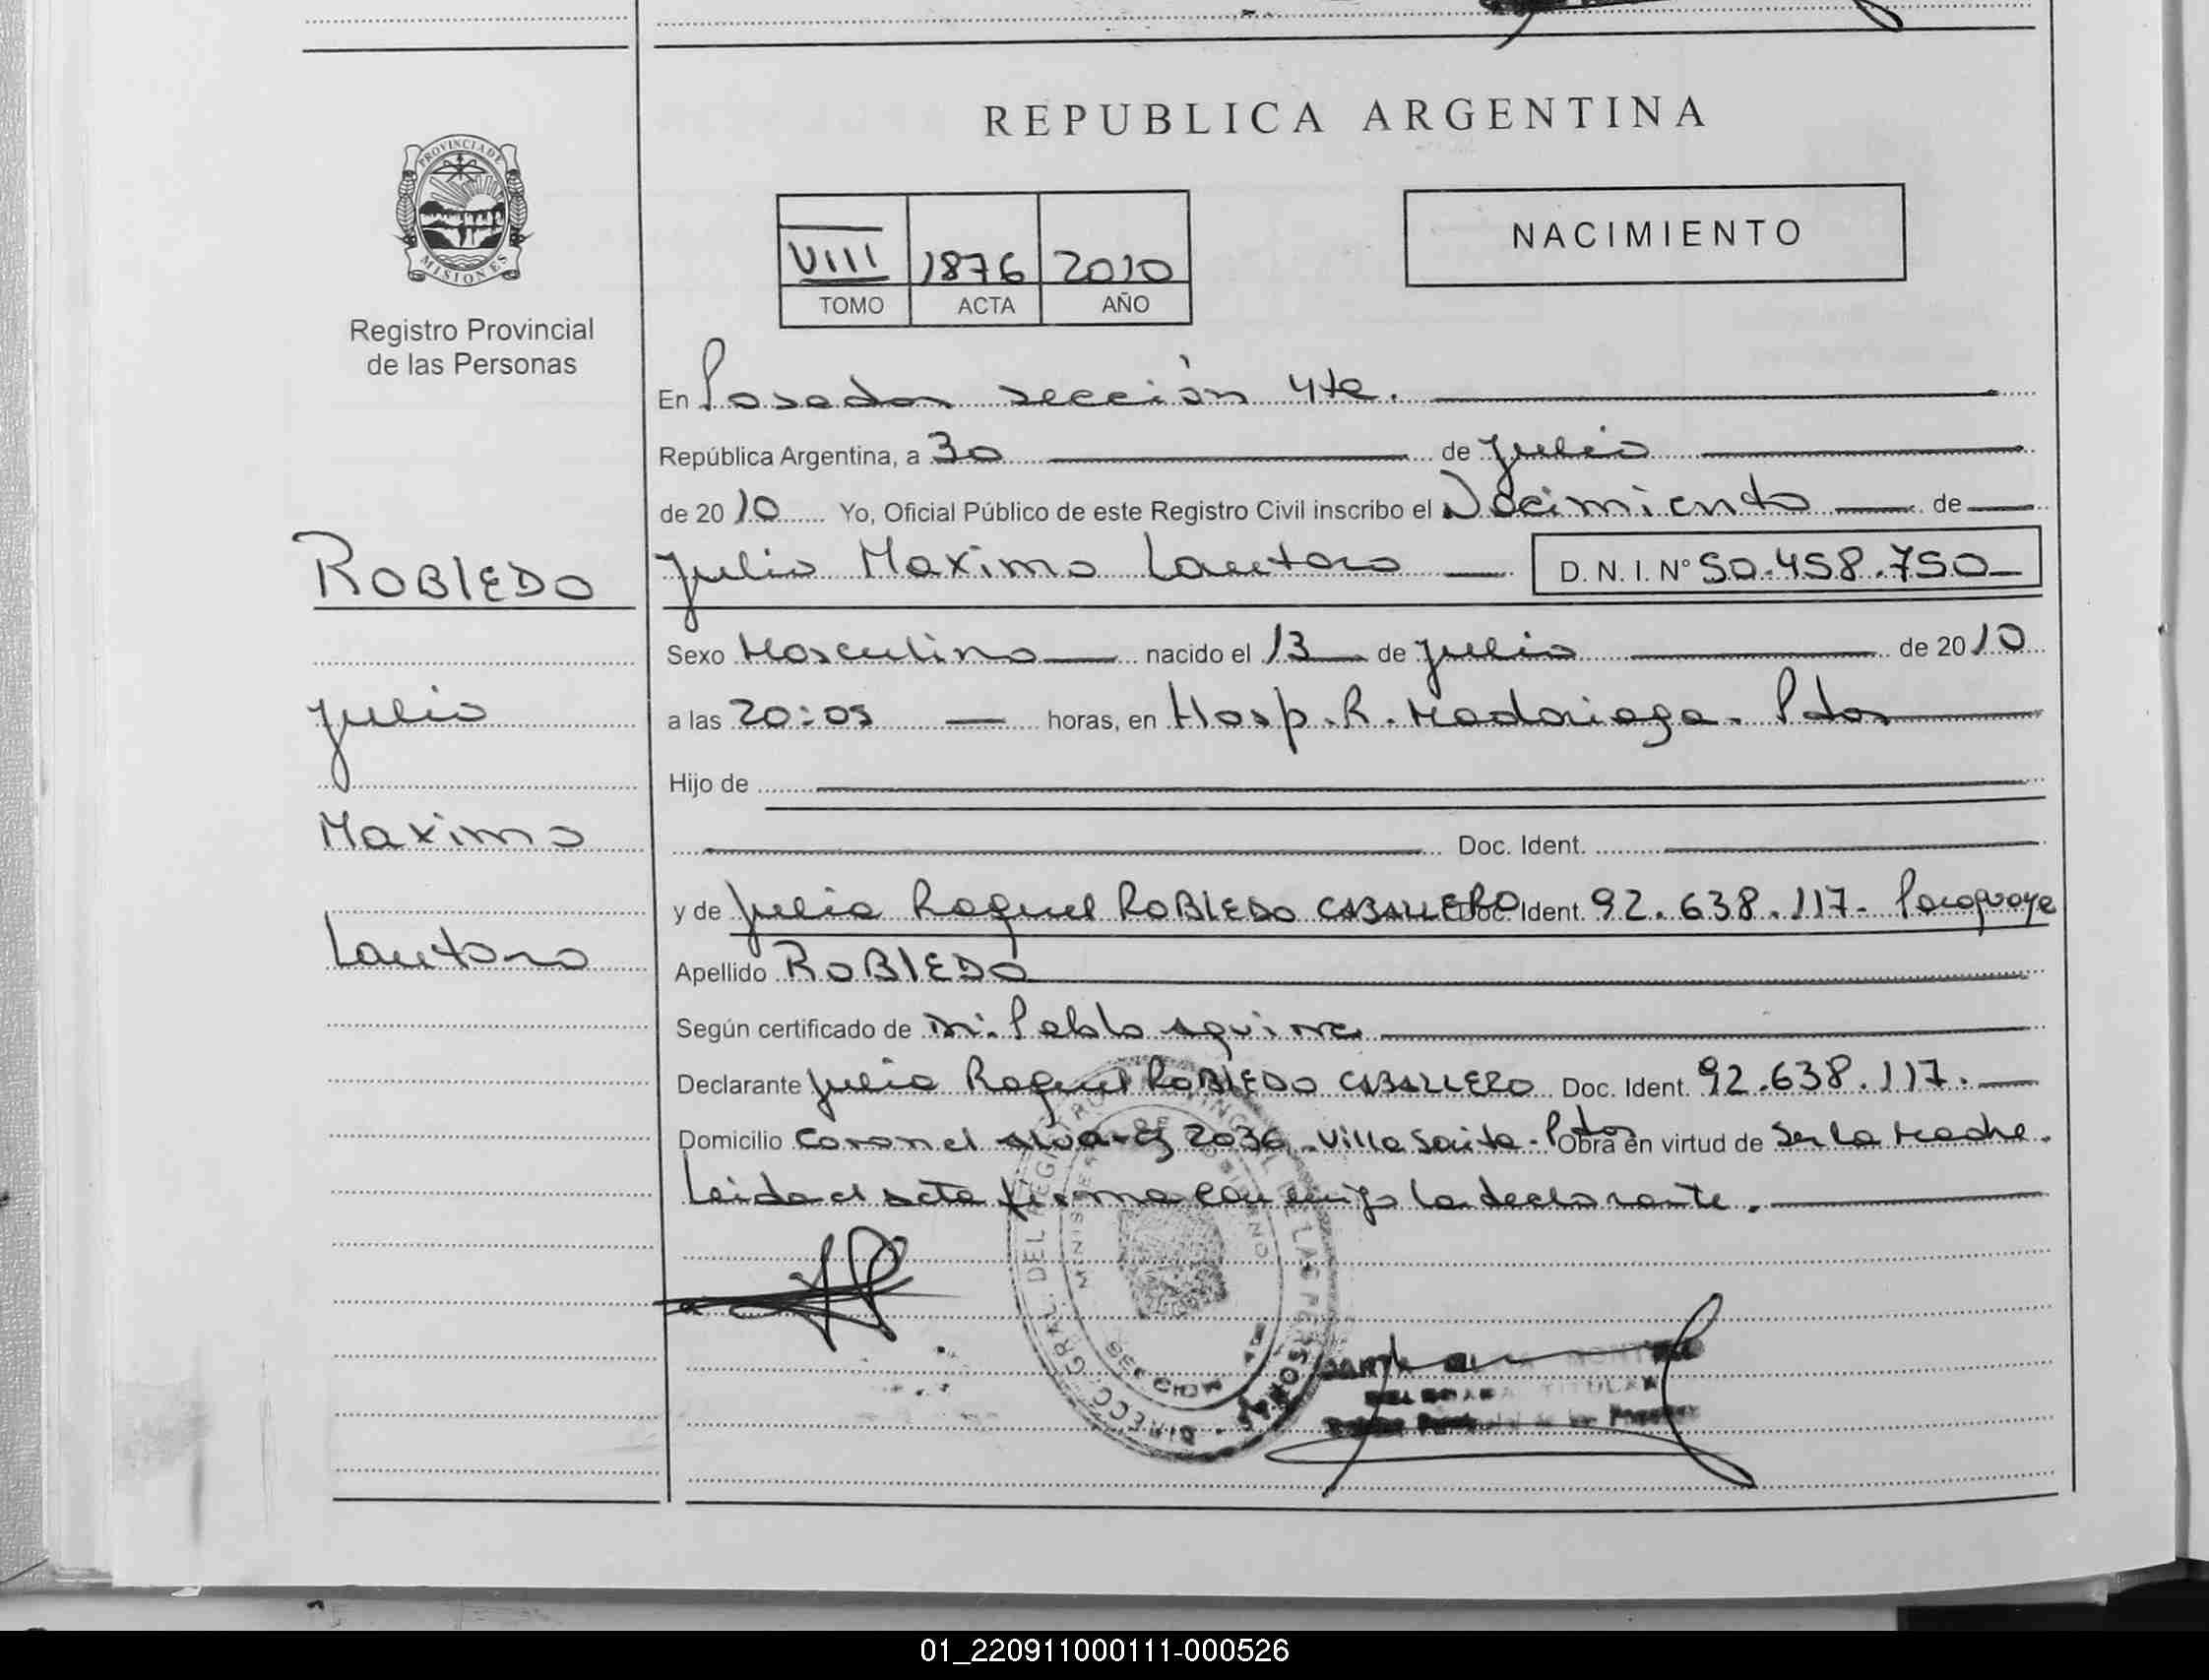 REPUBLICA ARGENTINA
PROVINCIA DE
MISIONES
Registro Provincial
de las Personas
VIII 1876 2010
TOMO ACTA AÑO
NACIMIENTO
En Posadas sección 4ta.
República Argentina, a 30 de julio
de 2010 Yo, Oficial Público de este Registro Civil inscribo el Nacimiento de
ROBLEDO
Julio Maximo Lautaro D.N.I. Nº 50.458.750
Sexo Masculino nacido el 13 de julio de 2010
Julio
a las 20:05 horas, en Hosp. R. Madariaga. Pdas
Hijo de
Maximo
Doc. Ident.
y de Julia Raquel ROBLEDO CABALLERO Doc. Ident. 92.638.117- Paraguaya
Lautaro
Apellido ROBLEDO
Según certificado de Dr. Pablo Aguirre
Declarante Julia Raquel ROBLEDO CABALLERO Doc. Ident. 92.638.117.
Domicilio Coronel Alvarez 2036 - Villa Sarita - Pdas Obra en virtud de Ser la Madre.
Leida el acta firma conmigo la declarante.
DIRECC. GRAL. DEL REGISTRO PROVINCIAL DE LAS PERSONAS
MINISTERIO DE GOBIERNO
SECCION 4a
TITULAR
01_220911000111-000526